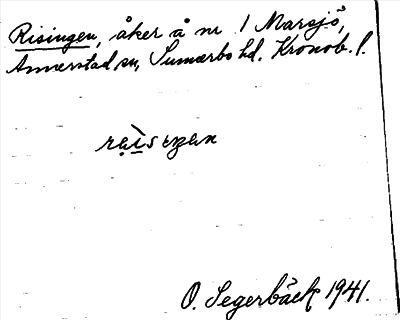 Risingen, åker å nr 1 Marsjö,
Annerstad sn, Sunnerbo hd. Kronob. l.
O. Segerbäck 1941.